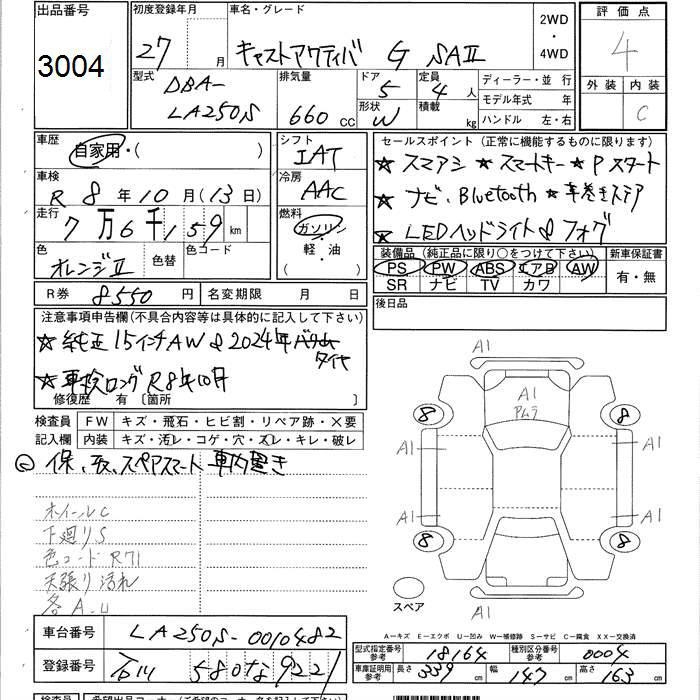 出品番号 3004
初度登録年月 27 年 月
車名・グレード キャストアクティバ G SAII
2WD ・ 4WD
評価点 4
外装 内装 C
型式 DBA- LA250S
排気量 660 CC
ドア 5
形状 W
定員 4 人
積載 kg
ディーラー・並行
モデル年式 年
ハンドル 左・右
車歴 自家用・( )
シフト IAT
セールスポイント(正常に機能するものに限ります)
★スマアシ ★スマートキー ★Pスタート
車検 R 8 年 10 月(13日)
冷房 AAC
★ナビ、Bluetooth ★革巻きステア
走行 7万6千159 km
燃料 ガソリン・軽・油 ・( )
★LEDヘッドライト&フォグ
色 オレンジII 色替 色コード
装備品(純正品に限り○をつけて下さい) 新車保証書
PS PW ABS エアB AW 有・無
SR ナビ TV カワ
R券 8550 円 名変期限 月 日
後日品
注意事項申告欄(不具合内容等は具体的に記入して下さい)
★純正15インチAW & 2024年 タイヤ
★車検ロング R8年10月
修復歴 有〔箇所 〕
検査員 FW キズ・飛石・ヒビ割・リペア跡・X要
記入欄 内装 キズ・汚レ・コゲ・穴・スレ・キレ・破レ
保、取、スペアスマート 車内置き
ホイールC
下廻りS
色コード R71
天張り汚れ
各A.U
A1
A1
アムラ
8 8
A1 A1
A1 A1
8 8
スペア
A1
A-キズ E-エクボ U-凹み W-補修跡 S-サビ C-腐食 XX-交換済
車台番号 LA250S-0010482
型式指定番号 参考 18164 種類区分番号 参考 0004
登録番号 石川 580 な 9221
車庫証明用 参考 長さ 339 cm 幅 147 cm 高さ 163 cm
検査員 希望出品コーナー(ご希望のコーナー名を記入して下さい)